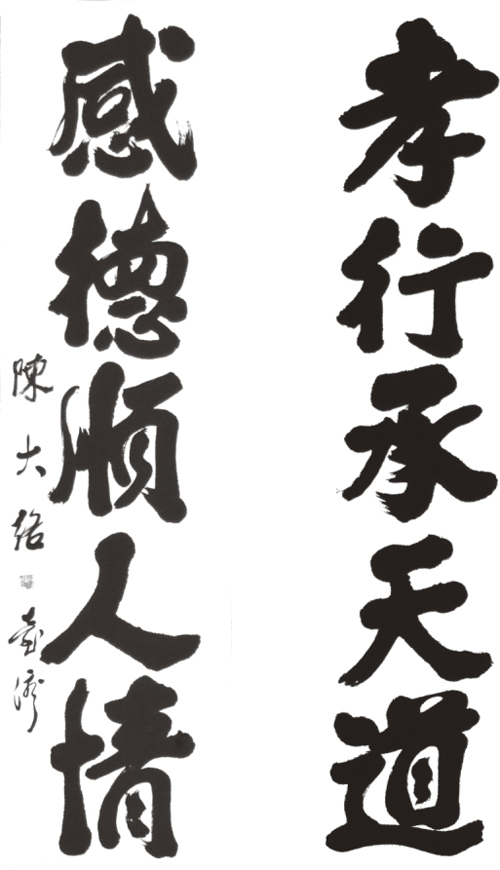 孝行承天道
感德順人情
陳大絡 臺灣